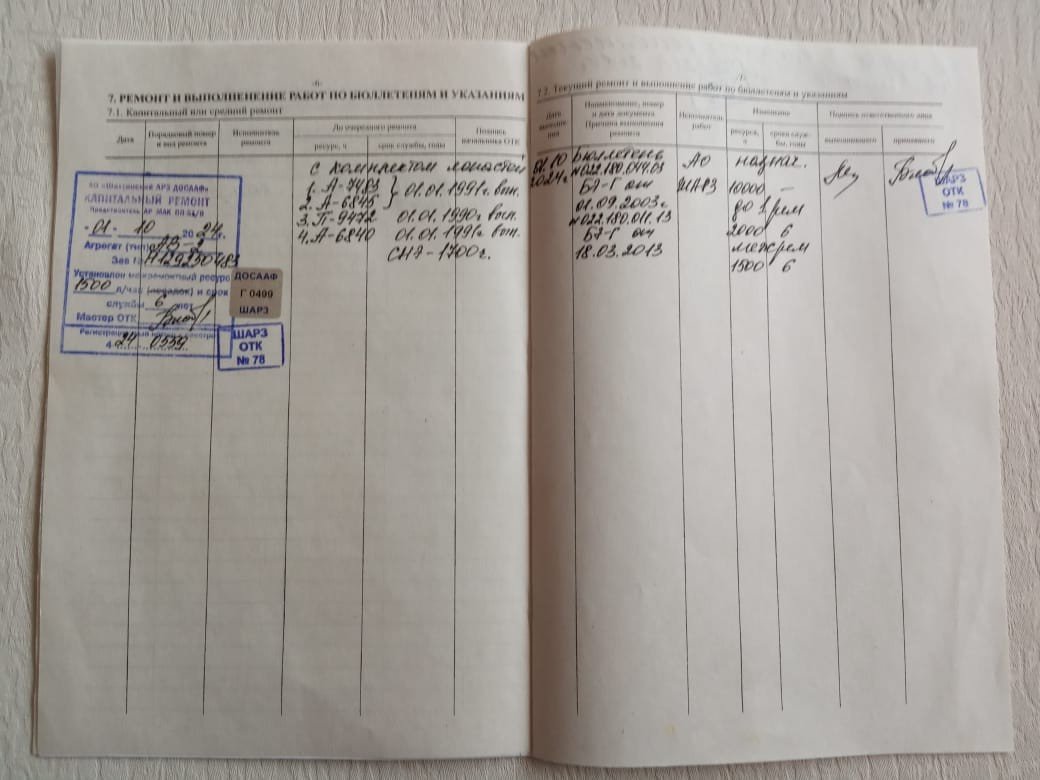 -6-
7. РЕМОНТ И ВЫПОЛНЕНЕНИЕ РАБОТ ПО БЮЛЛЕТЕНЯМ И УКАЗАНИЯМ
7.1. Капитальный или средний ремонт
Дата
Порядковый номер и вид ремонта
Исполнитель ремонта
До очередного ремонта
ресурс, ч
срок службы, годы
Подпись начальника ОТК
с комплектом лопастей
1. А-7483 } 01.01.1991г. вып.
2. А-6845
3. Г-9472 01.01.1990г. вып.
4. А-6840 01.01.1991г. вып.
СНЭ-1700г.
АО «Шахтинский АРЗ ДОСААФ»
КАПИТАЛЬНЫЙ РЕМОНТ
Представитель АР МАК
01 - 10 2024г.
Агрегат (тип) АВ-2
Зав № Н129230483
Установлен межремонтный ресурс
1500 л/час (посадок) и срок
службы 6 лет
Мастер ОТК
4 24 0559
ДОСААФ
Г 0499
ШАРЗ
ШАРЗ
ОТК
№ 78
7.2. Текущий ремонт и выполнение работ по бюллетеням и указаниям
Дата выполнения
Наименование, номер и дата документа
Причина выполнения ремонта
Исполнитель работ
Изменение
ресурса, ч
срока службы, годы
Подпись ответственного лица
выполнившего
принявшего
01.10 Бюллетень АО назнач.
2024г. №022.180.044.03 ШАРЗ 10000 —
БЭ-Г от
01.09.2003г. до 1 рем
№022.180.011.13 2000 6
БЭ-Г от
18.03.2013 межрем
1500 6
ШАРЗ
ОТК
№ 78